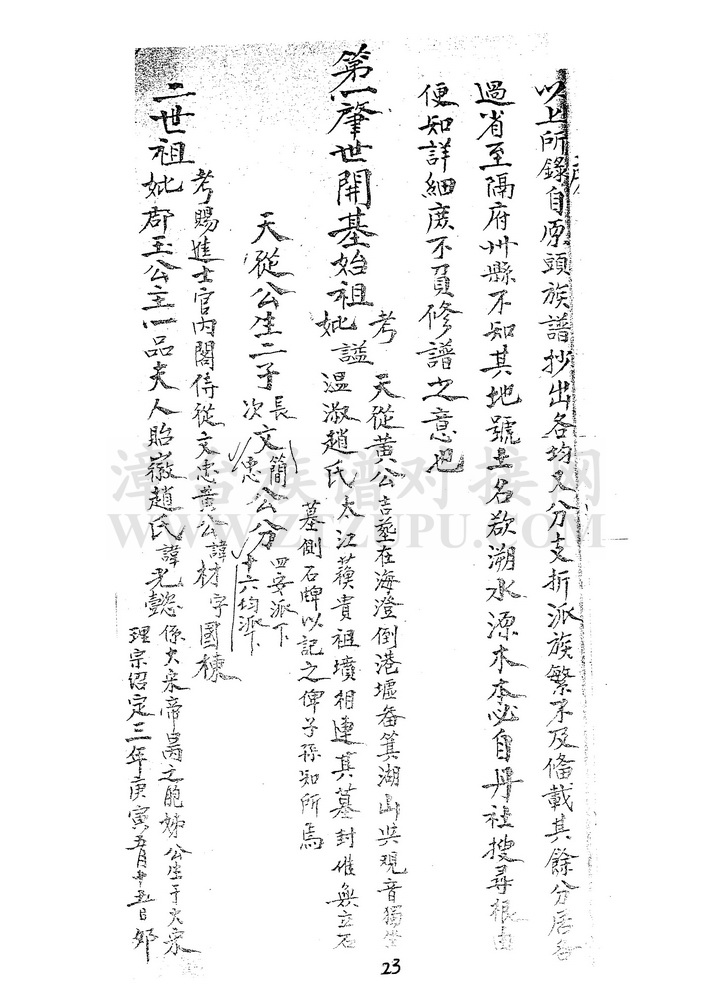 以上所錄自原頭族譜抄出各均又分支折派族繁不及俻載其餘分居各
過省至隔府州縣不知其地號土名欲溯水源木本必自丹社搜尋根由
便知詳細庶不負修譜之意也
第一肇世開基始祖
考 天從黃公吉塟在海澄倒港墟畚箕湖山與觀音獨坐
妣 謚溫淑趙氏太江蘓貴祖墳相連其墓封堆無立石
墓側石碑以記之俾子孫知所焉
天從公生二子
長文簡公分四安派下
次文忠公分十六均派下
二世祖
考賜進士官內閣侍從文忠黃公諱材字國棟
妣郡玉公主一品夫人貽嶶趙氏諱光懿
係大宋帝昺之胞姊公生于大宋
理宗紹定三年庚寅五月十五日卯
漳台族谱对接网
WWW.ZTZUPU.COM
23